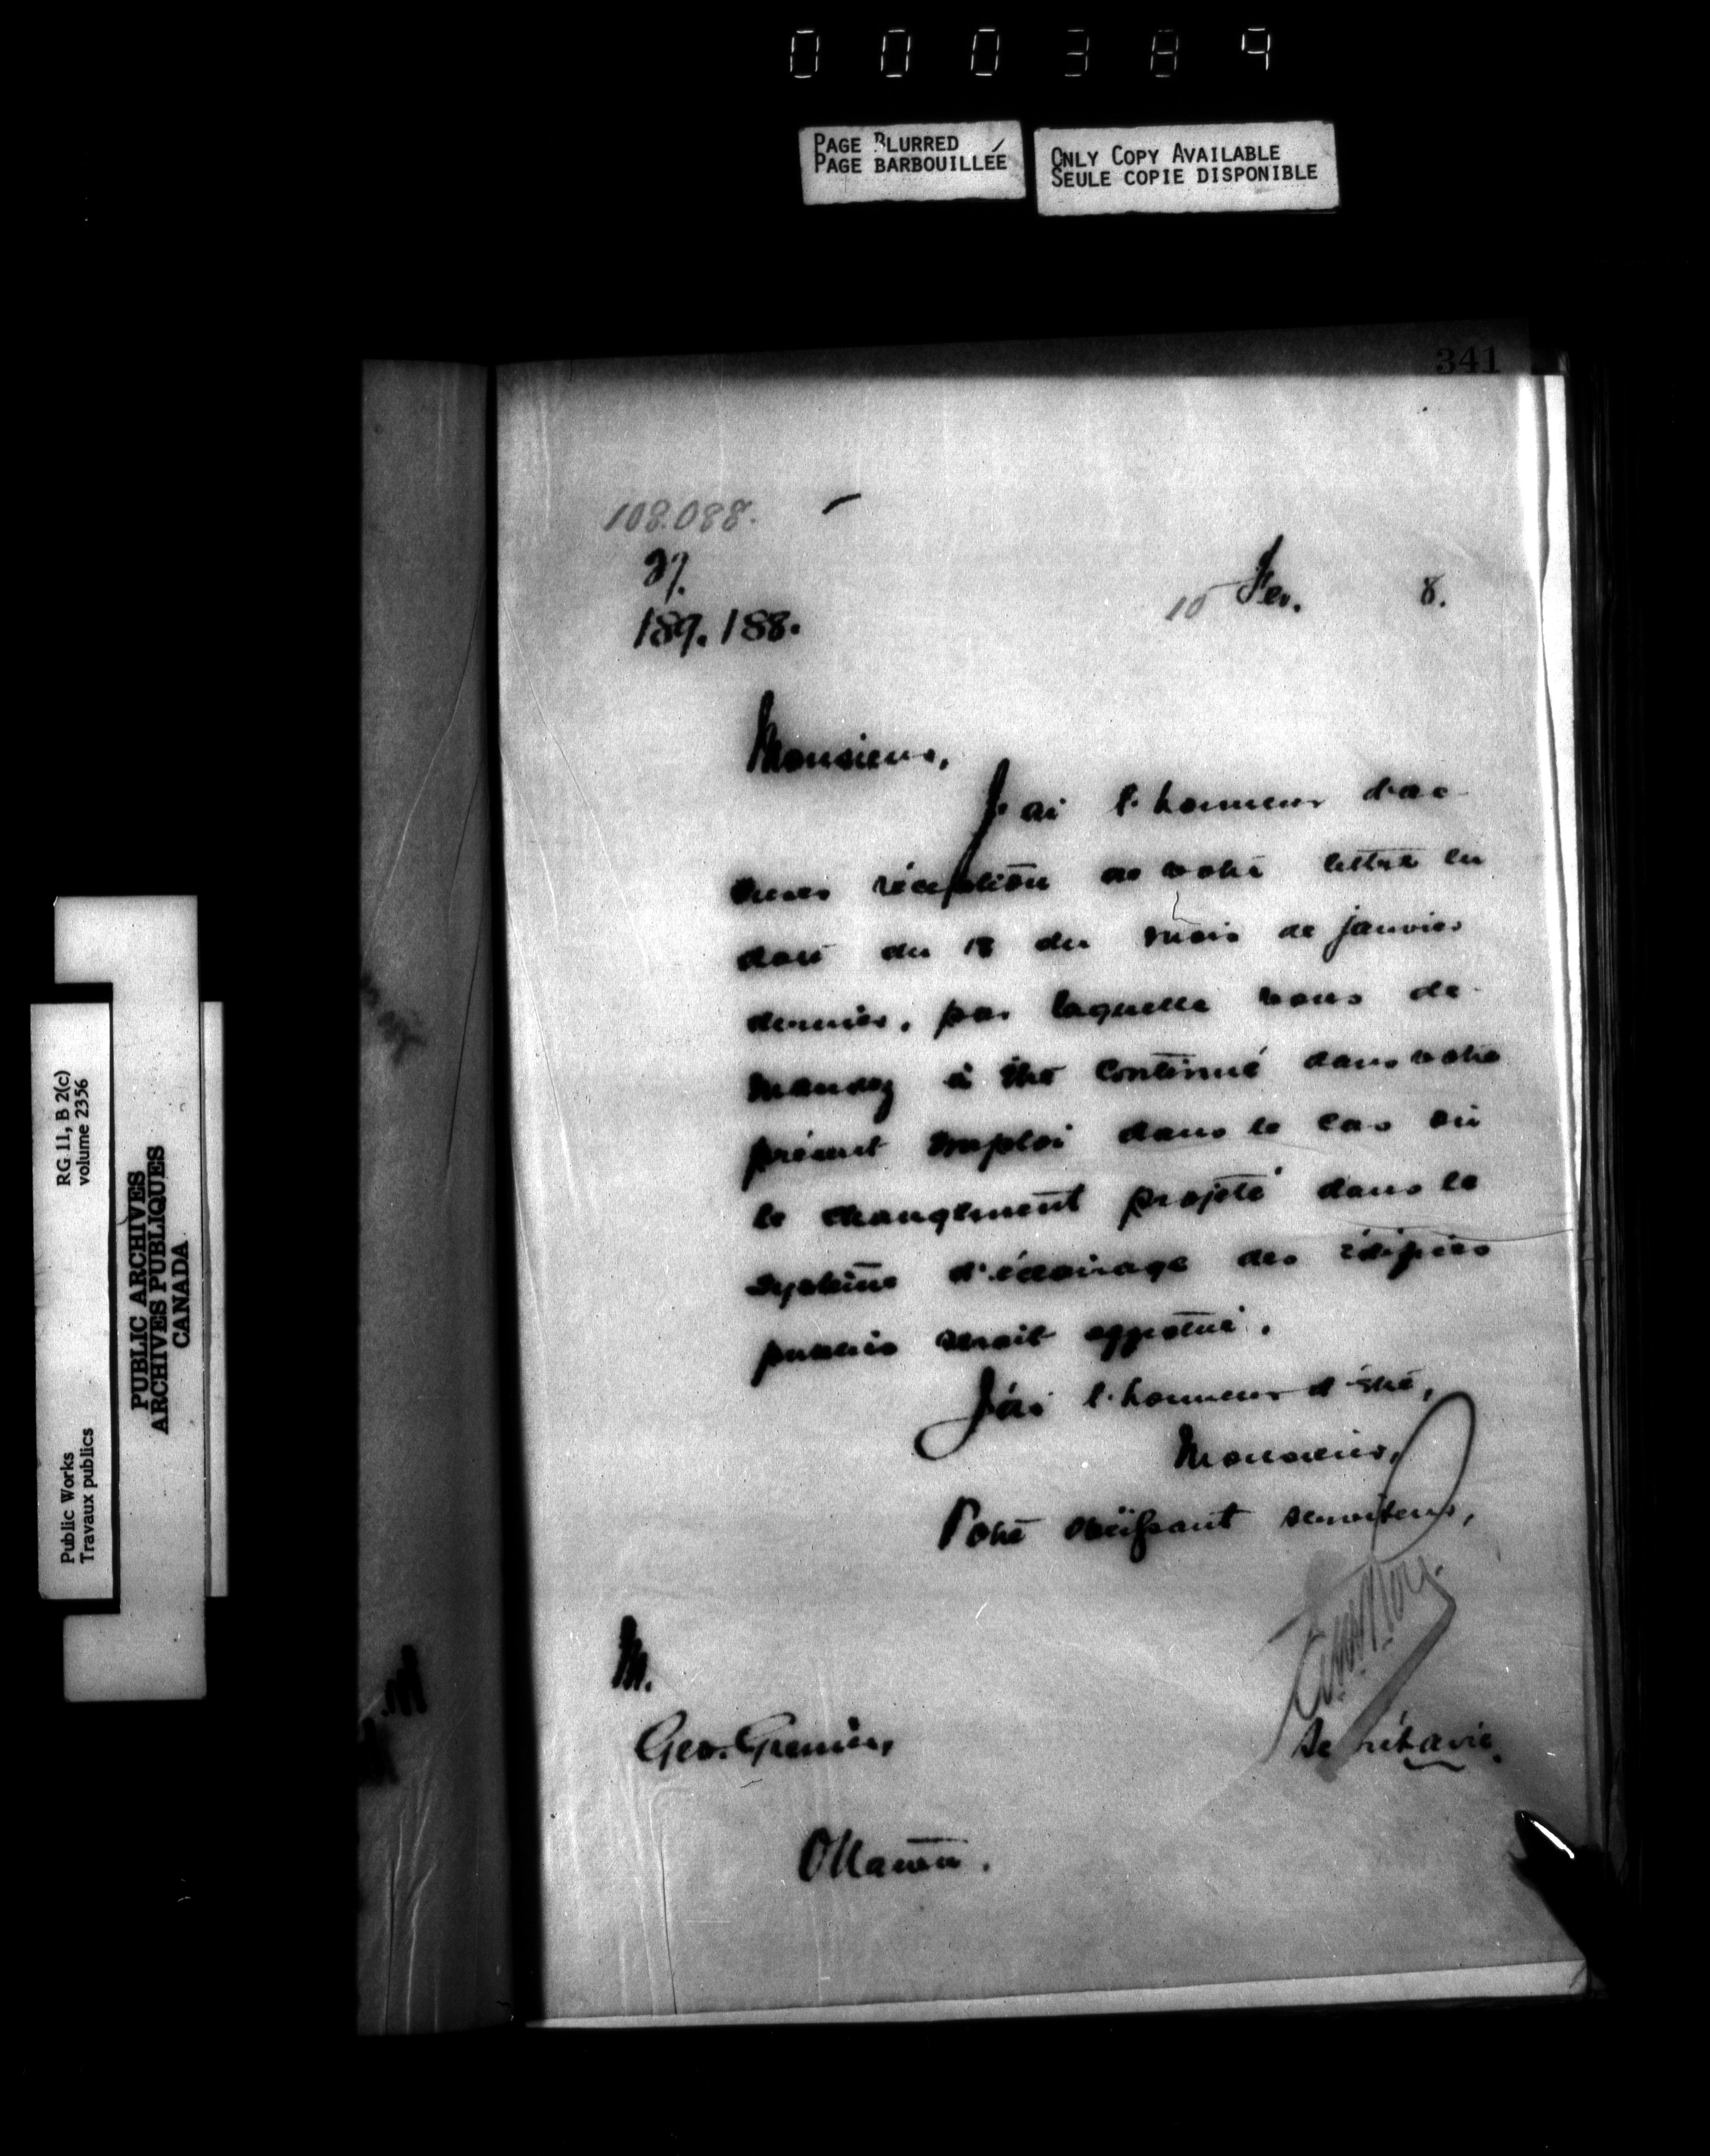 000389
PAGE BLURRED
PAGE BARBOUILLÉE
ONLY COPY AVAILABLE
SEULE COPIE DISPONIBLE
341
108.088.
27.
189.188.
10 Fev. 8.
Monsieur,
J'ai l'honneur d'ac-
cuser réception de votre lettre en
date du 18 du mois de janvier
dernier, par laquelle vous de-
mandez à être continué dans votre
présent emploi dans le cas où
le changement projeté dans le
système d'éclairage des édifices
publics serait effectué.
J'ai l'honneur d'être,
Monsieur,
Votre obéissant serviteur,
Secrétaire.
M.
Geo. Grenier,
Ottawa.
RG 11, B 2(c)
volume 2356
Public Works
Travaux publics
PUBLIC ARCHIVES
ARCHIVES PUBLIQUES
CANADA